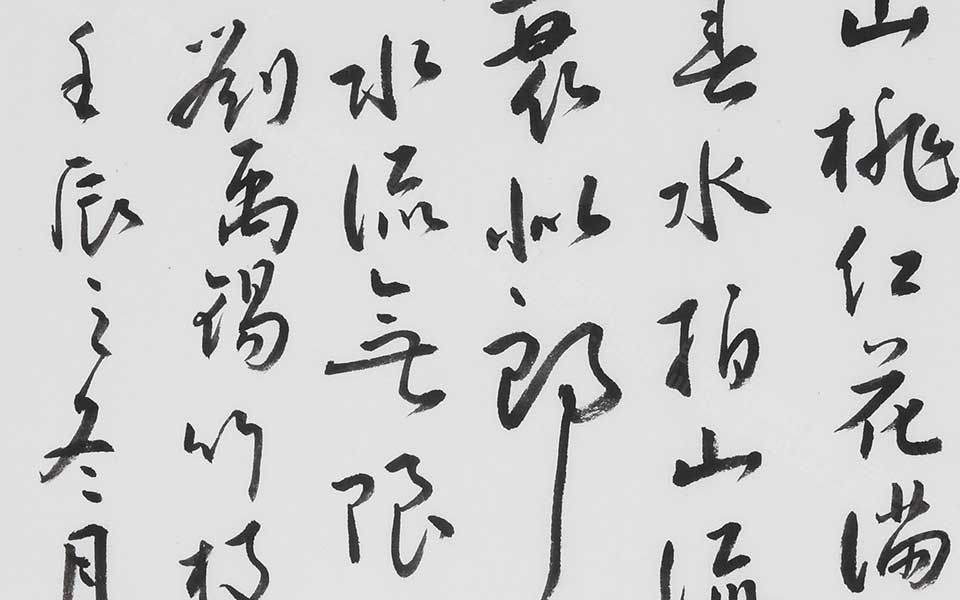 山桃红花满
春水拍山流
衰似郎
水流無限
劉禹锡竹枝
壬辰之冬月